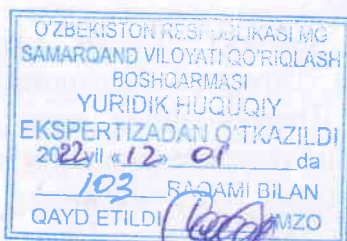 O'ZBEKISTON RESPUBLIKASI MG
SAMARQAND VILOYATI QO'RIQLASH
BOSHQARMASI
YURIDIK HUQUQIY
EKSPERTIZADAN O'TKAZILDI
2022 yil «12» 01 da
103 RAQAMI BILAN
QAYD ETILDI IMZO